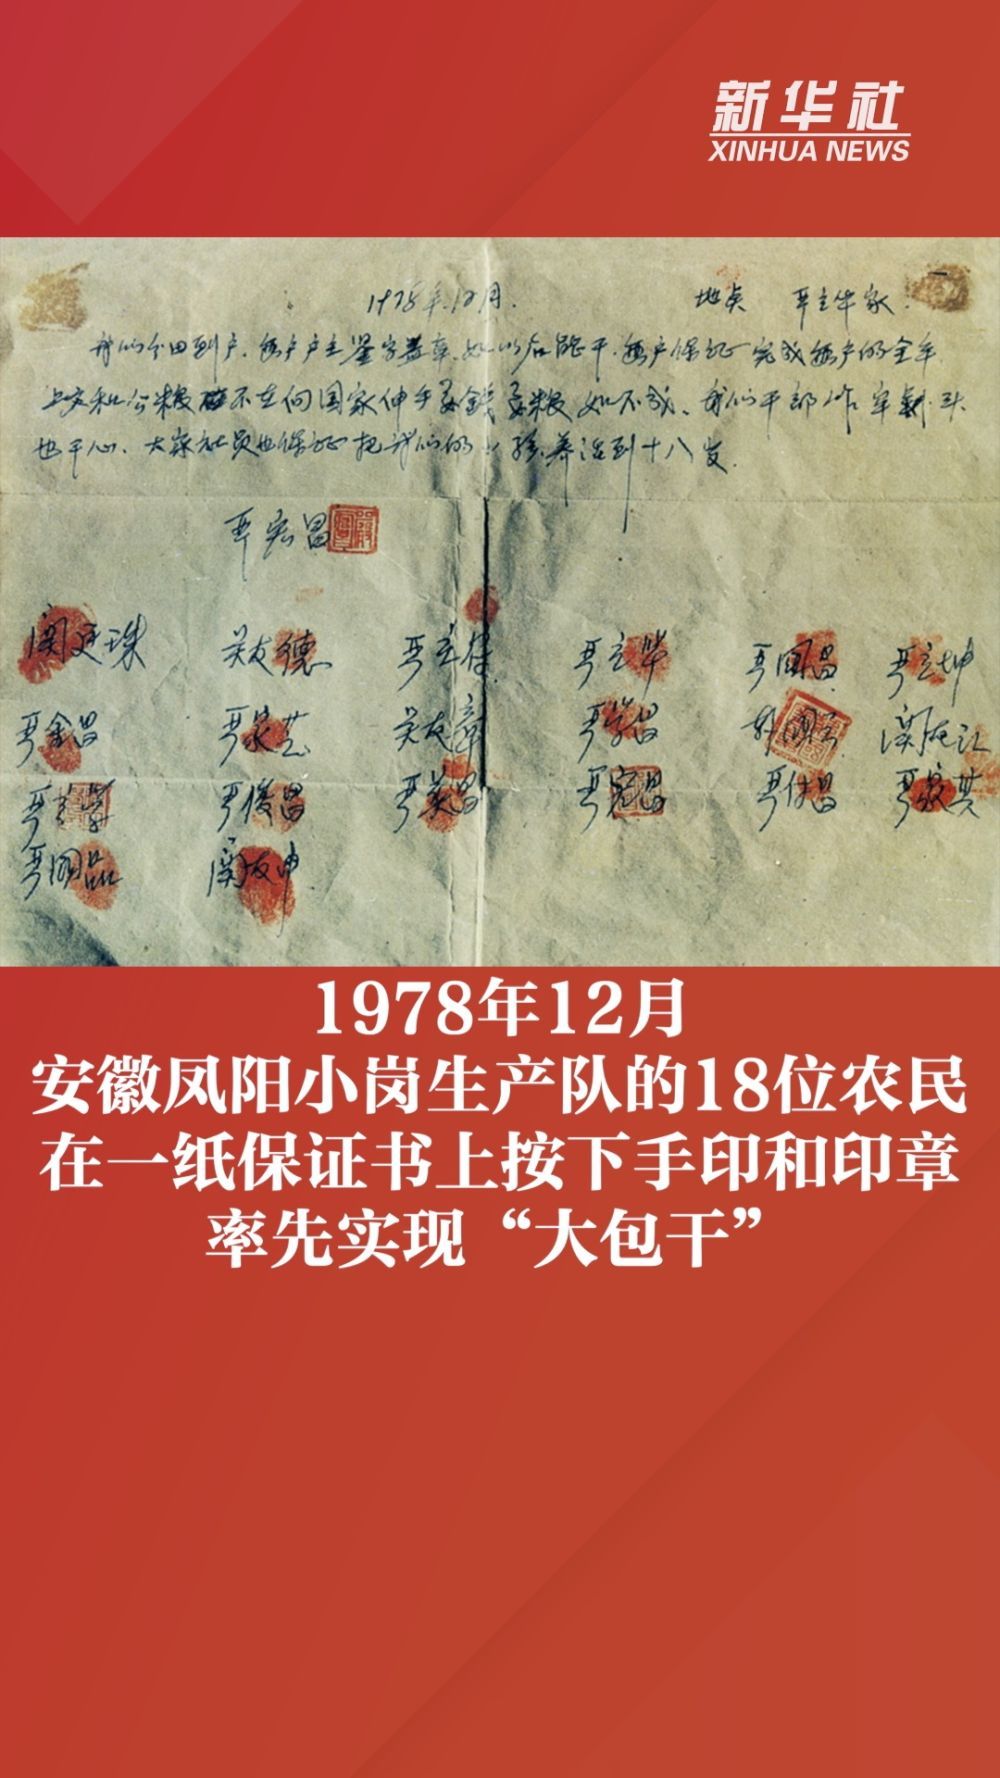 新华社
XINHUA NEWS
1978年12月. 地点 严立华家.
我们分田到户.每户户主签字盖章.如以后能干.每户保证完成每户的全年
上交和公粮不在向国家伸手要钱要粮.如不成.我们干部作牢剎头
也干心.大家社员也保证把我们的小孩养活到十八岁.
严宏昌
关廷珠 关友德 严立符 严立华 严国昌 严立坤
严金昌 严家芝 关友章 严学昌 韩国云 关友江
严立学 严俊昌 严美昌 严宏昌 严付昌 严家其
严国品 关友申
1978年12月
安徽凤阳小岗生产队的18位农民
在一纸保证书上按下手印和印章
率先实现“大包干”